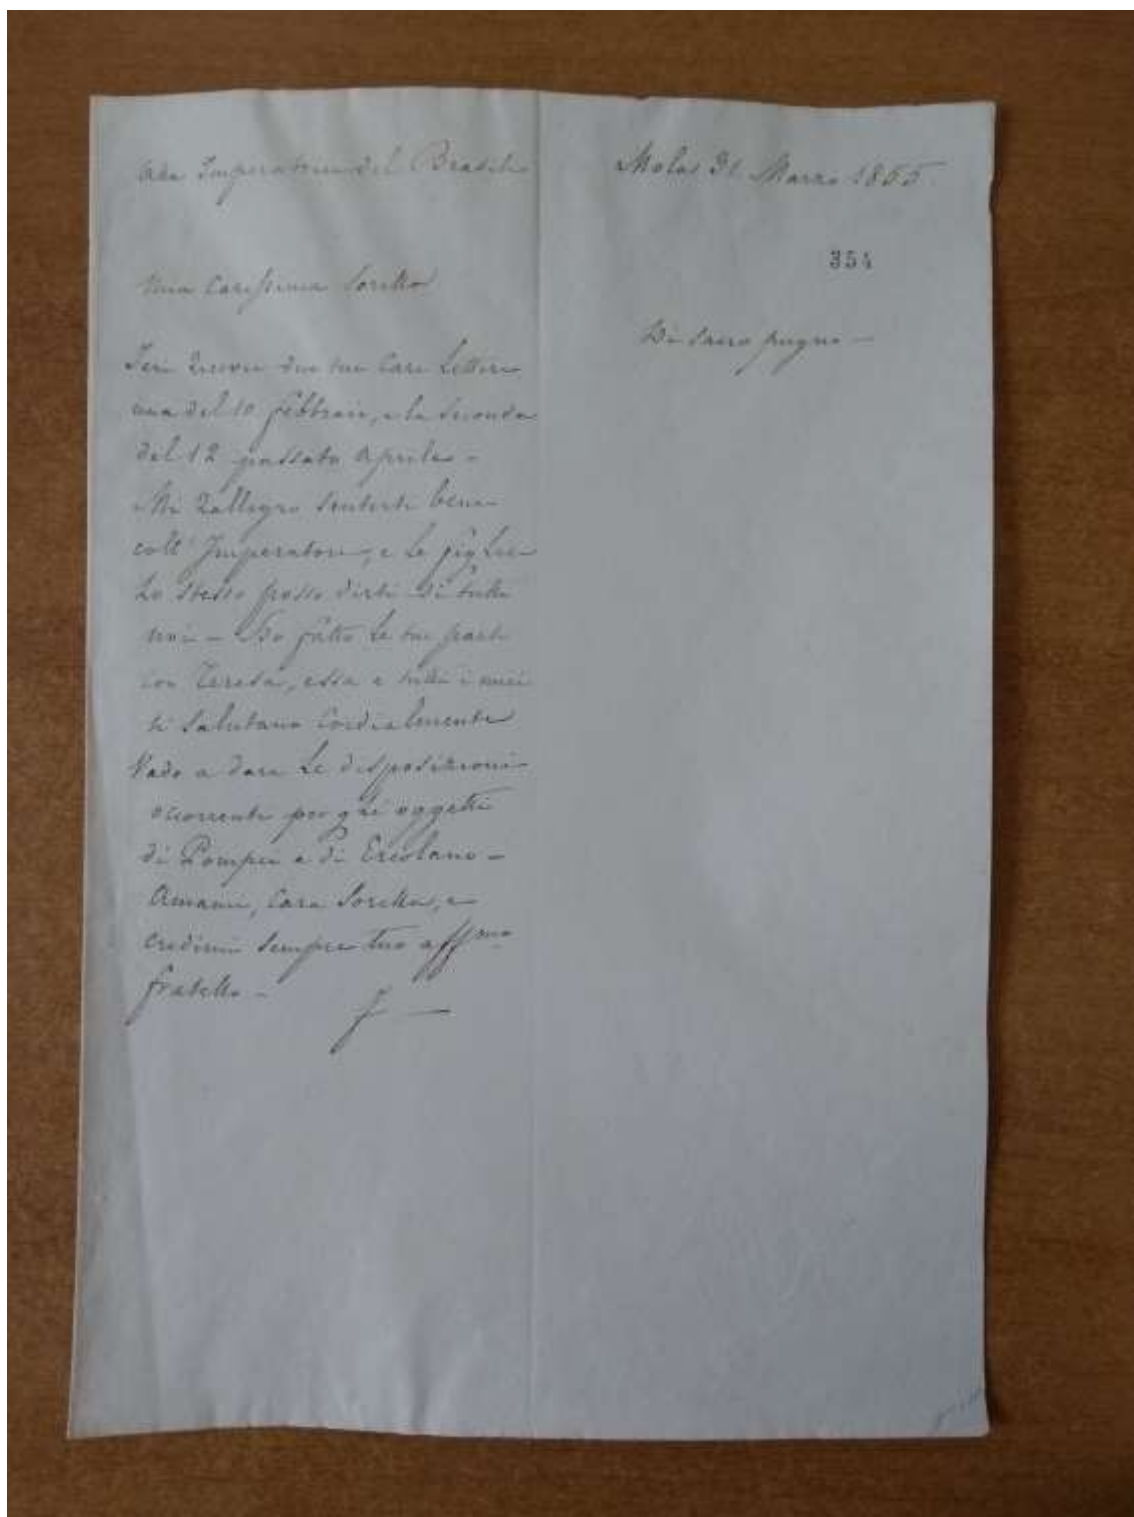 Alla Imperatrice del Brasile
Mia Carissima Sorella
Ieri ricevei due tue care Lettere
una del 10 febbraio, e la seconda
del 12 passato Aprile -
Mi rallegro sentirti bene
coll' Imperatore, e le figlie
Lo stesso posso dirti di tutti
noi - Ho fatto le tue parti
con Teresa, essa e tutti i miei
ti salutano cordialmente
Vado a dare le disposizioni
occorrenti per gli oggetti
di Pompei e di Ercolano -
Amami, cara Sorella, e
credimi sempre tuo affmo
fratello -
F
31 Marzo 1855
354
Di Sacro pugno -